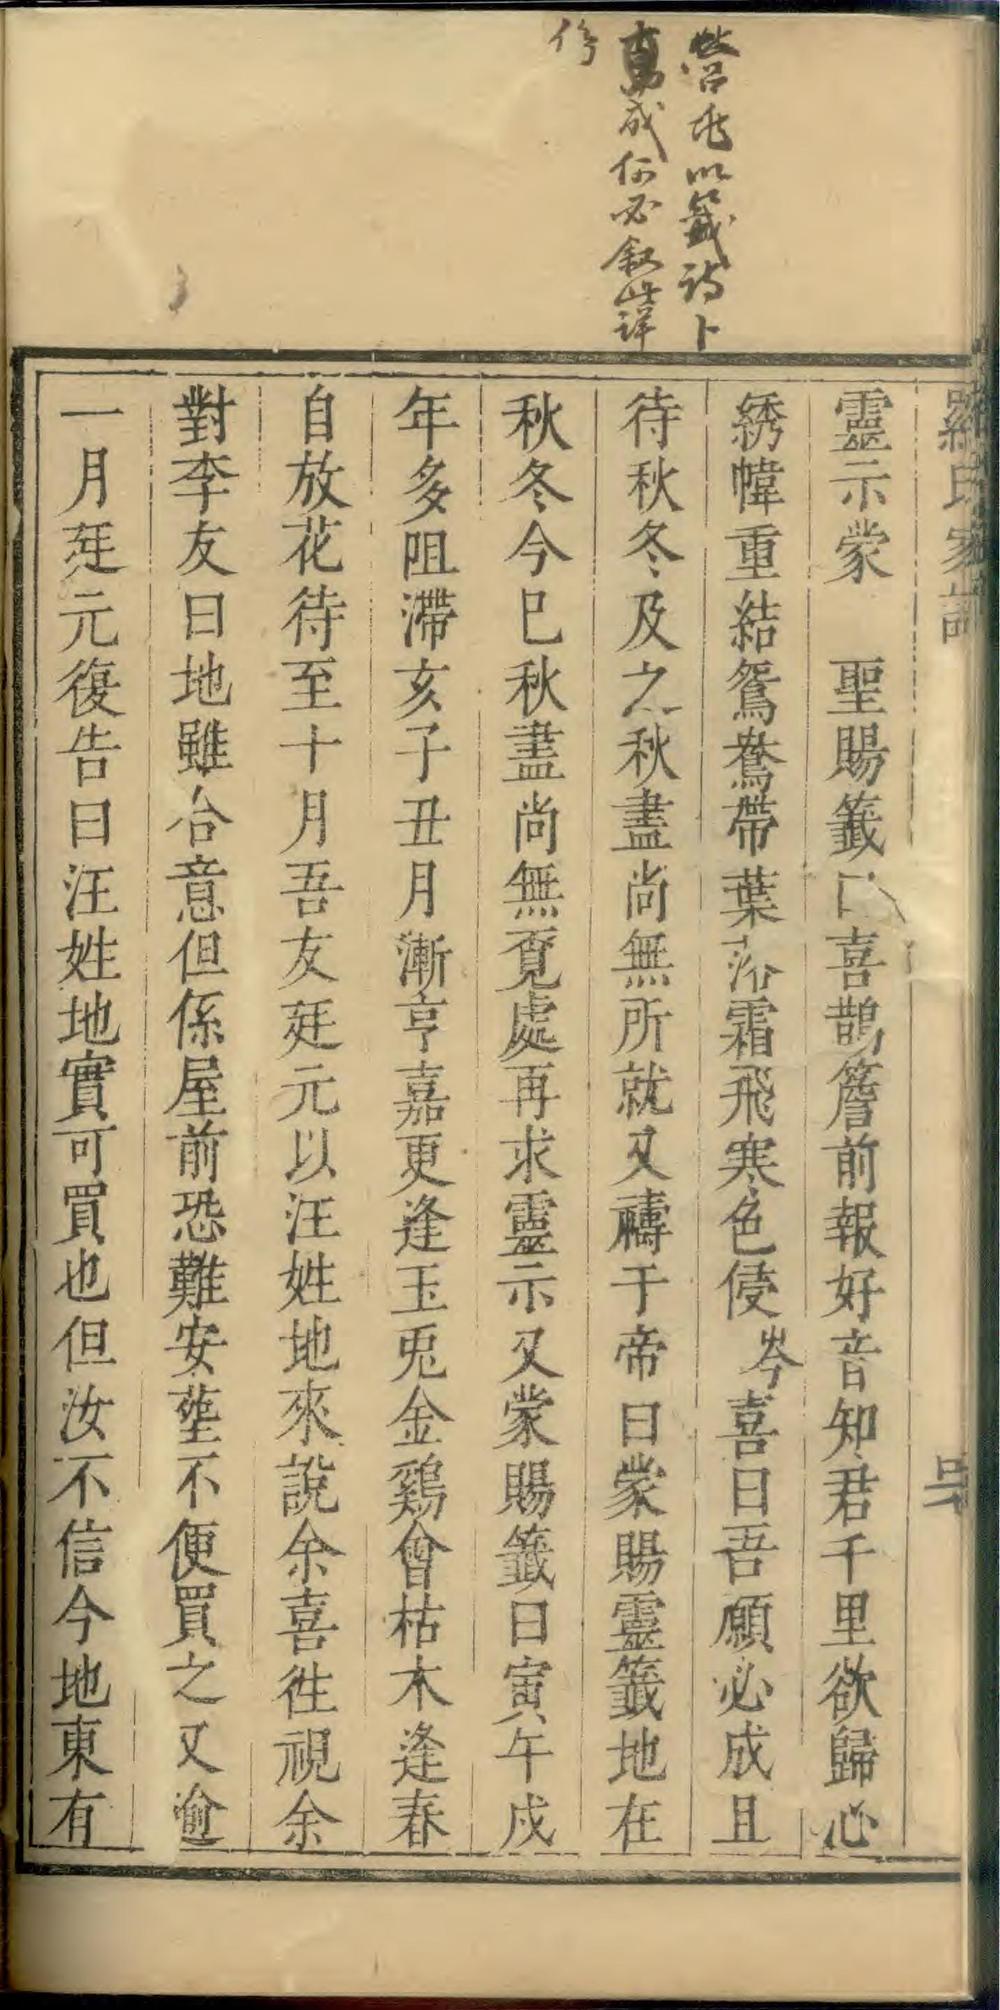 營兆以籤詩卜
成何必叙此詳
羅氏家譜
靈示蒙　聖賜籤曰喜鵲簷前報好音知君千里欲歸心
綉幃重結鴛鴦帶葉落霜飛寒色侵岑喜曰吾願必成且
待秋冬及之秋盡尚無所就又禱于帝曰蒙賜靈籤地在
秋冬今已秋盡尚無覔處再求靈示又蒙賜籤曰寅午戌
年多阻滯亥子丑月漸亨嘉更逢玉兎金鷄會枯木逢春
自放花待至十月吾友廷元以汪姓地來說余喜徃視余
對李友曰地雖合意但係屋前恐難安塟不便買之又逾
一月廷元復告曰汪姓地實可買也但汝不信今地東有